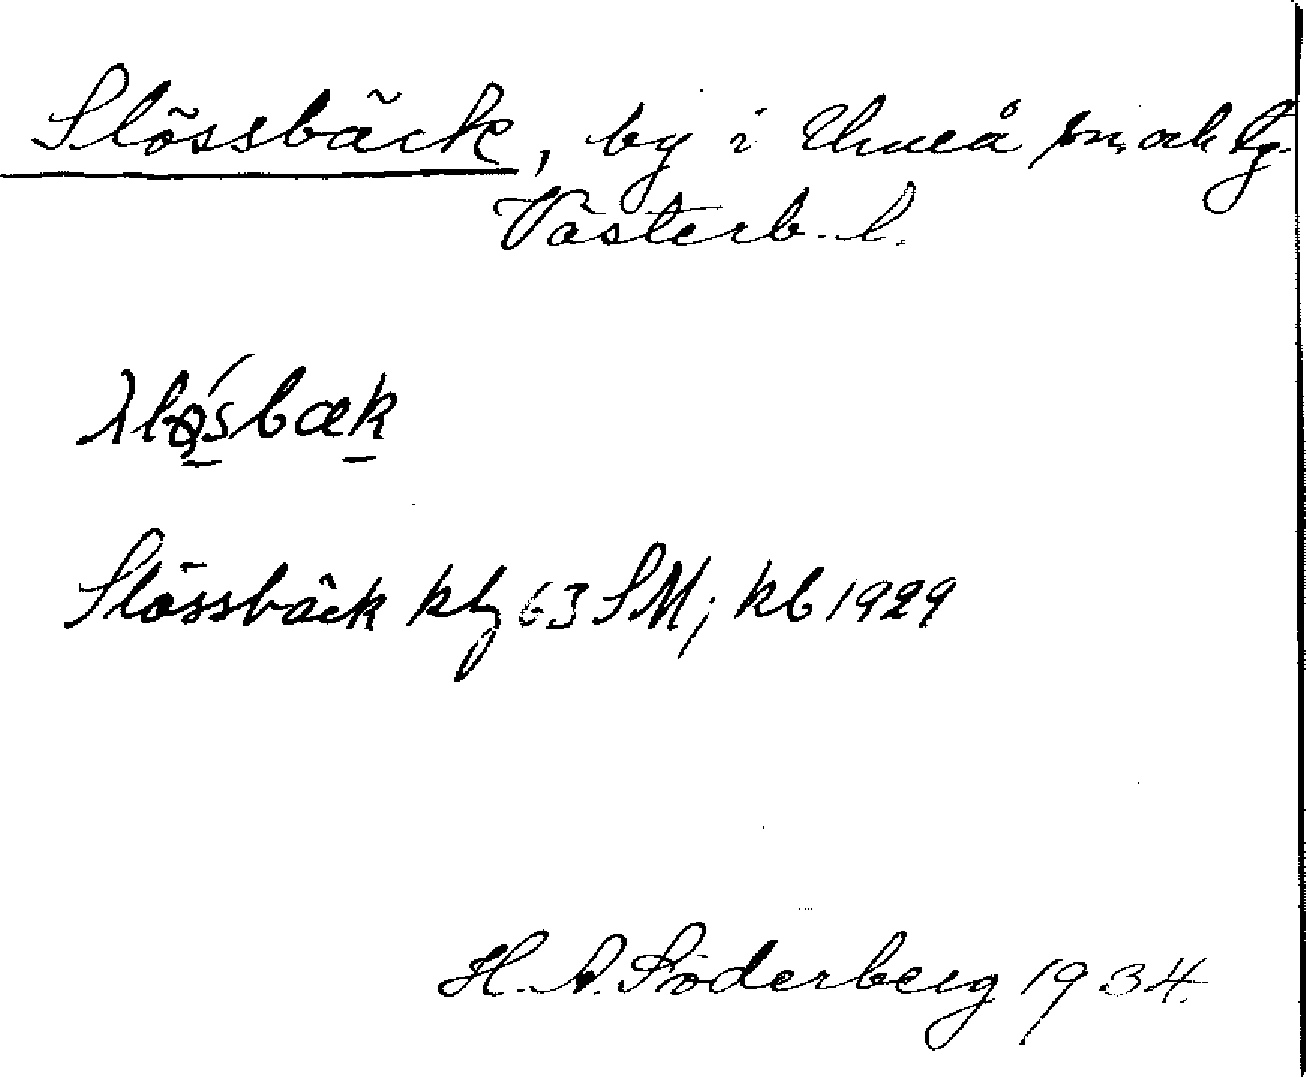 Slössbäck, by i Umeå sn. och tg.
Västerb. l.
Slössbäck ktg 63 SM; kb 1929
H. A. Söderberg 1934.